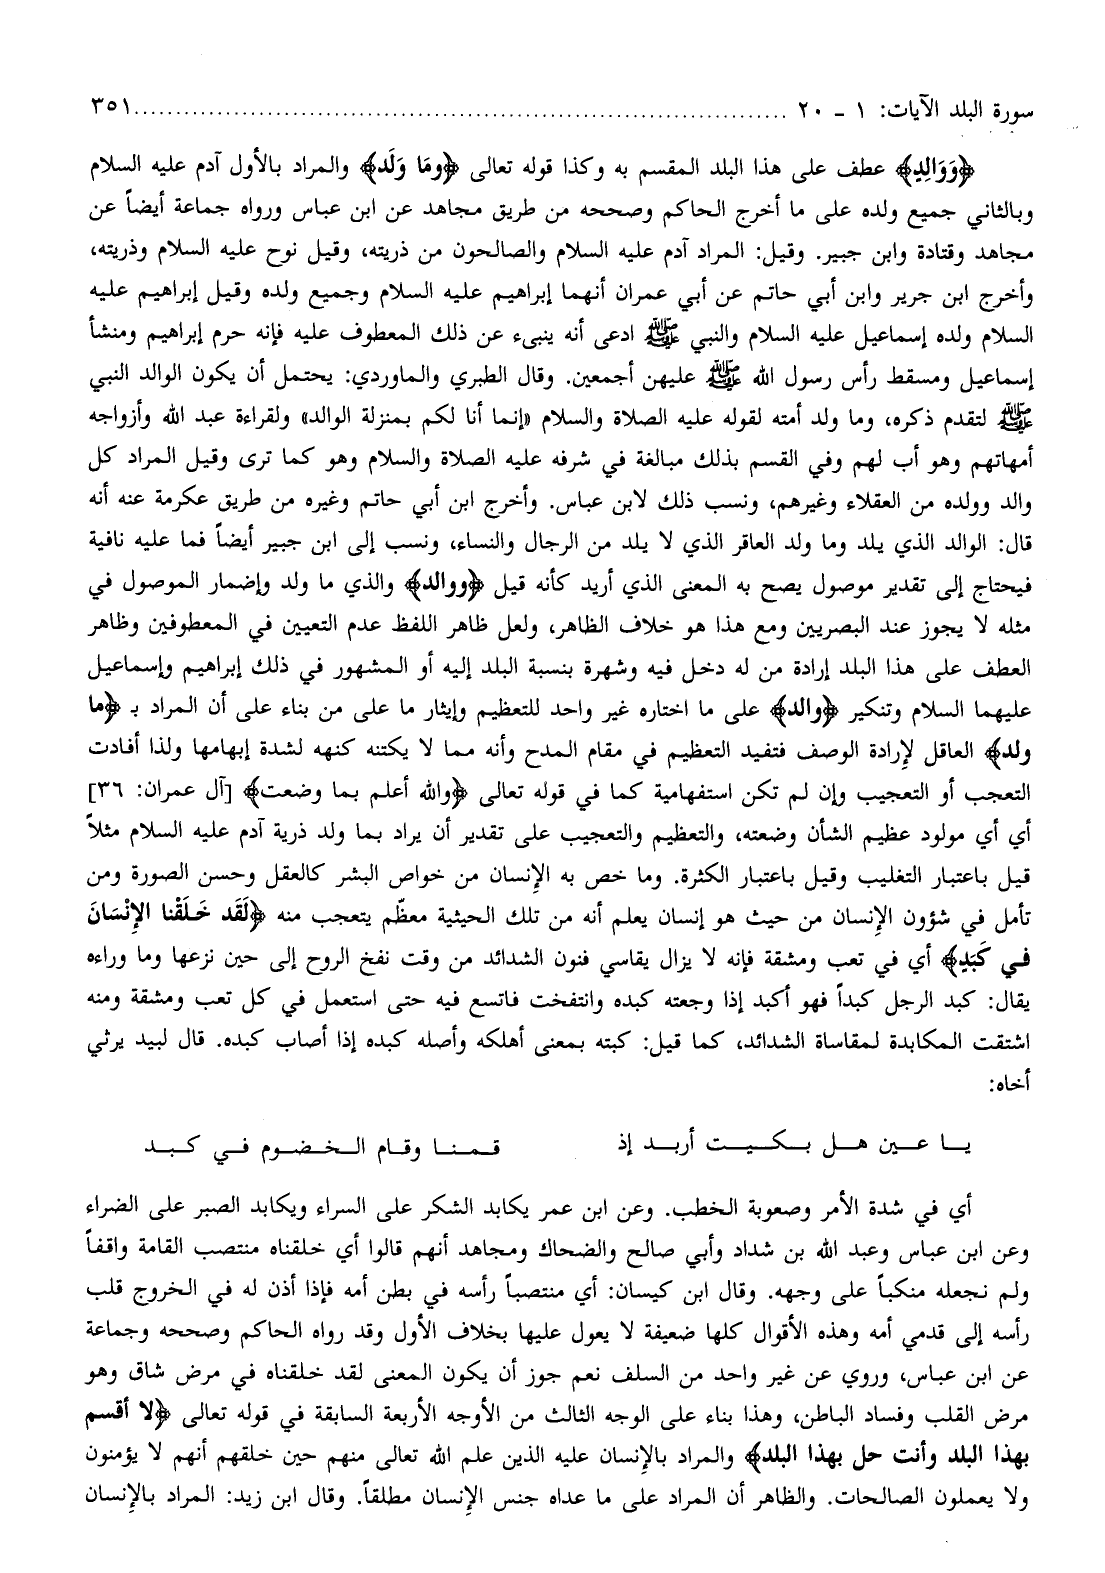 سورة البلد الآيات: ١ - ٢٠ ................................................................................ ٣٥١
﴿وَوَالِدٍ﴾ عطف على هذا البلد المقسم به وكذا قوله تعالى ﴿وما وَلَد﴾ والمراد بالأول آدم عليه السلام
وبالثاني جميع ولده على ما أخرج الحاكم وصححه من طريق مجاهد عن ابن عباس ورواه جماعة أيضاً عن
مجاهد وقتادة وابن جبير. وقيل: المراد آدم عليه السلام والصالحون من ذريته، وقيل نوح عليه السلام وذريته،
وأخرج ابن جرير وابن أبي حاتم عن أبي عمران أنهما إبراهيم عليه السلام وجميع ولده وقيل إبراهيم عليه
السلام ولده إسماعيل عليه السلام والنبي ﷺ ادعى أنه ينبىء عن ذلك المعطوف عليه فإنه حرم إبراهيم ومنشأ
إسماعيل ومسقط رأس رسول الله ﷺ عليهن أجمعين. وقال الطبري والماوردي: يحتمل أن يكون الوالد النبي
ﷺ لتقدم ذكره، وما ولد أمته لقوله عليه الصلاة والسلام «إنما أنا لكم بمنزلة الوالد» ولقراءة عبد الله وأزواجه
أمهاتهم وهو أب لهم وفي القسم بذلك مبالغة في شرفه عليه الصلاة والسلام وهو كما ترى وقيل المراد كل
والد وولده من العقلاء وغيرهم، ونسب ذلك لابن عباس. وأخرج ابن أبي حاتم وغيره من طريق عكرمة عنه أنه
قال: الوالد الذي يلد وما ولد العاقر الذي لا يلد من الرجال والنساء، ونسب إلى ابن جبير أيضاً فما عليه نافية
فيحتاج إلى تقدير موصول يصح به المعنى الذي أريد كأنه قيل ﴿ووالد﴾ والذي ما ولد وإضمار الموصول في
مثله لا يجوز عند البصريين ومع هذا هو خلاف الظاهر، ولعل ظاهر اللفظ عدم التعيين في المعطوفين وظاهر
العطف على هذا البلد إرادة من له دخل فيه وشهرة بنسبة البلد إليه أو المشهور في ذلك إبراهيم وإسماعيل
عليهما السلام وتنكير ﴿والد﴾ على ما اختاره غير واحد للتعظيم وإيثار ما على من بناء على أن المراد بـ ﴿ما
ولد﴾ العاقل لإرادة الوصف فتفيد التعظيم في مقام المدح وأنه مما لا يكتنه كنهه لشدة إبهامها ولذا أفادت
التعجب أو التعجيب وإن لم تكن استفهامية كما في قوله تعالى ﴿والله أعلم بما وضعت﴾ [آل عمران: ٣٦]
أي أي مولود عظيم الشأن وضعته، والتعظيم والتعجيب على تقدير أن يراد بما ولد ذرية آدم عليه السلام مثلاً
قيل باعتبار التغليب وقيل باعتبار الكثرة. وما خص به الإنسان من خواص البشر كالعقل وحسن الصورة ومن
تأمل في شؤون الإنسان من حيث هو إنسان يعلم أنه من تلك الحيثية معظّم يتعجب منه ﴿لَقَد خَلَقْنا الإنْسَانَ
في كَبَدٍ﴾ أي في تعب ومشقة فإنه لا يزال يقاسي فنون الشدائد من وقت نفخ الروح إلى حين نزعها وما وراءه
يقال: كبد الرجل كبداً فهو أكبد إذا وجعته كبده وانتفخت فاتسع فيه حتى استعمل في كل تعب ومشقة ومنه
اشتقت المكابدة لمقاساة الشدائد، كما قيل: كبته بمعنى أهلكه وأصله كبده إذا أصاب كبده. قال لبيد يرثي
أخاه:
يا عين هل بكيت أربد إذ قمنا وقام الخضوم في كبد
أي في شدة الأمر وصعوبة الخطب. وعن ابن عمر يكابد الشكر على السراء ويكابد الصبر على الضراء
وعن ابن عباس وعبد الله بن شداد وأبي صالح والضحاك ومجاهد أنهم قالوا أي خلقناه منتصب القامة واقفاً
ولم نجعله منكباً على وجهه. وقال ابن كيسان: أي منتصباً رأسه في بطن أمه فإذا أذن له في الخروج قلب
رأسه إلى قدمي أمه وهذه الأقوال كلها ضعيفة لا يعول عليها بخلاف الأول وقد رواه الحاكم وصححه وجماعة
عن ابن عباس، وروي عن غير واحد من السلف نعم جوز أن يكون المعنى لقد خلقناه في مرض شاق وهو
مرض القلب وفساد الباطن، وهذا بناء على الوجه الثالث من الأوجه الأربعة السابقة في قوله تعالى ﴿لا أقسم
بهذا البلد وأنت حل بهذا البلد﴾ والمراد بالإنسان عليه الذين علم الله تعالى منهم حين خلقهم أنهم لا يؤمنون
ولا يعملون الصالحات. والظاهر أن المراد على ما عداه جنس الإنسان مطلقاً. وقال ابن زيد: المراد بالإنسان